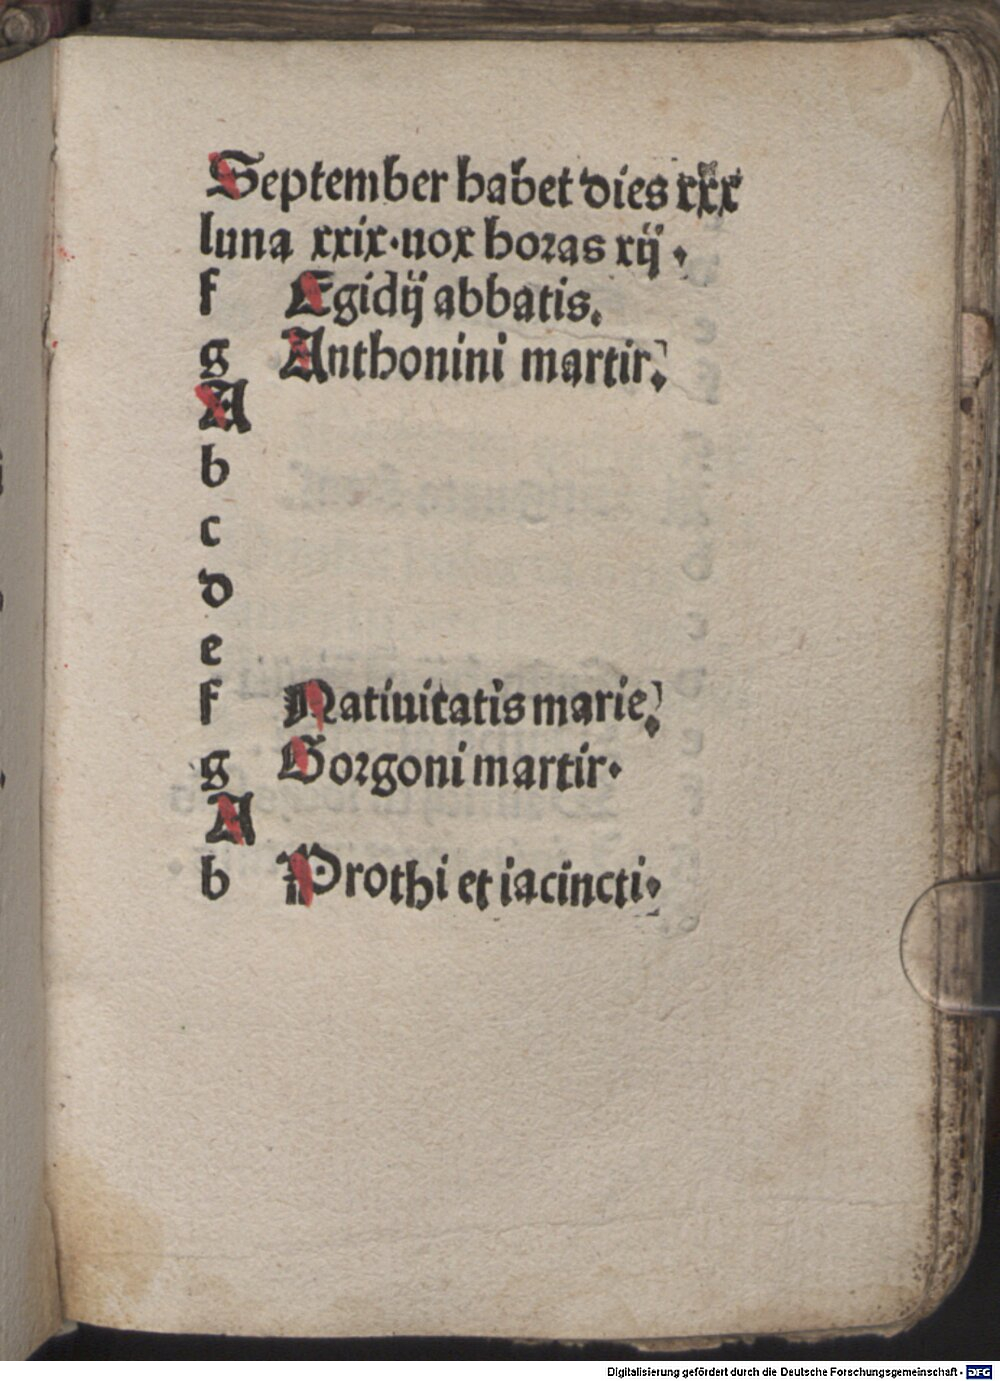 September habet dies xxx
luna xxix·nox horas xij·
f Egidij abbatis.
g Anthonini martir.
A
b
c
d
e
f Natiuitatis marie.
g Gorgoni martir·
A
b Prothi et iacincti·
Digitalisierung gefördert durch die Deutsche Forschungsgemeinschaft - DFG